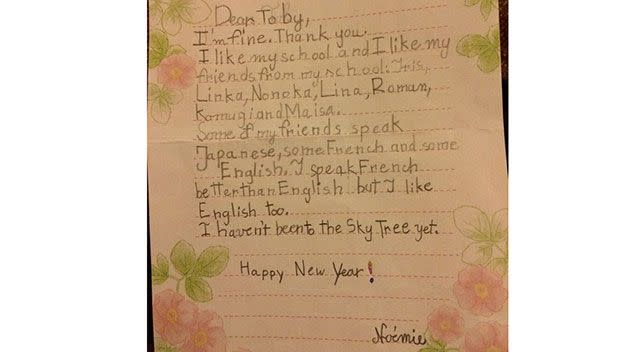 Dear Toby,
I'm fine. Thank you.
I like my school and I like my
friends from my school: Iris,
Linka, Nonoka, Lina, Roman,
Komugi and Maisa.
Some of my friends speak
Japanese, some French and some
English. I speak French
better than English but I like
English too.
I haven't been to the Sky Tree yet.
Happy New Year!
Noémie